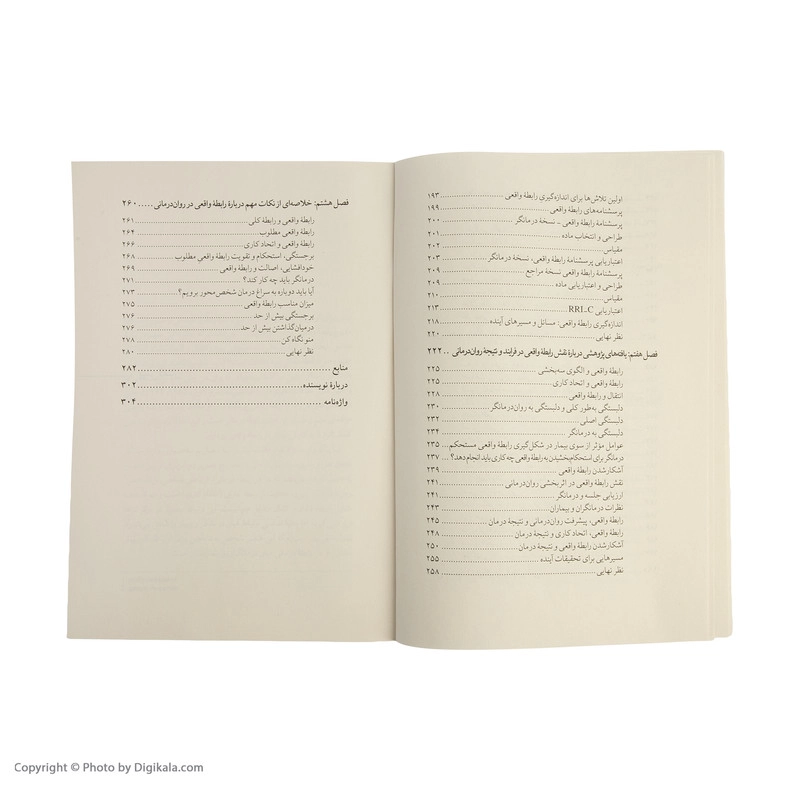 اولین تلاش‌ها برای اندازه‌گیری رابطهٔ واقعی ........ ۱۹۳
پرسشنامه‌های رابطهٔ واقعی ........ ۱۹۹
پرسشنامهٔ رابطهٔ واقعی ـ نسخهٔ درمانگر ........ ۲۰۰
طراحی و انتخاب ماده ........ ۲۰۱
مقیاس ........ ۲۰۲
اعتباریابی پرسشنامهٔ رابطهٔ واقعی، نسخهٔ درمانگر ........ ۲۰۳
پرسشنامهٔ رابطهٔ واقعی نسخهٔ مراجع ........ ۲۰۹
طراحی و اعتباریابی ماده ........ ۲۰۹
مقیاس ........ ۲۱۰
اعتباریابی RRI-C ........ ۲۱۳
اندازه‌گیری رابطهٔ واقعی: مسائل و مسیرهای آینده ........ ۲۱۸
نظر نهایی ........ ۲۲۰
فصل هفتم: یافته‌های پژوهشی دربارهٔ نقش رابطهٔ واقعی در فرایند و نتیجهٔ روان‌درمانی .. ۲۲۲
رابطهٔ واقعی و الگوی سه‌بخشی ........ ۲۲۵
رابطهٔ واقعی و اتحاد کاری ........ ۲۲۵
انتقال و رابطهٔ واقعی ........ ۲۲۸
دلبستگی به‌طور کلی و دلبستگی به روان‌درمانگر ........ ۲۳۰
دلبستگی اصلی ........ ۲۳۲
دلبستگی به درمانگر ........ ۲۳۴
عوامل مؤثر از سوی بیمار در شکل‌گیری رابطهٔ واقعی مستحکم... ۲۳۵
درمانگر برای استحکام‌بخشیدن به رابطهٔ واقعی چه کاری باید انجام دهد؟ ... ۲۳۷
آشکارشدن رابطهٔ واقعی ........ ۲۳۹
نقش رابطهٔ واقعی در اثربخشی روان‌درمانی ........ ۲۴۱
ارزیابی جلسه و درمانگر ........ ۲۴۱
نظرات درمانگران و بیماران ........ ۲۴۳
رابطهٔ واقعی، پیشرفت روان‌درمانی و نتیجهٔ درمان ........ ۲۴۵
رابطهٔ واقعی، اتحاد کاری و نتیجهٔ درمان ........ ۲۴۸
آشکارشدن رابطهٔ واقعی و نتیجهٔ درمان ........ ۲۵۰
مسیرهایی برای تحقیقات آینده ........ ۲۵۵
نظر نهایی ........ ۲۵۸
فصل هشتم: خلاصه‌ای از نکات مهم دربارهٔ رابطهٔ واقعی در روان‌درمانی ..... ۲۶۰
رابطهٔ واقعی و رابطهٔ کلی ........ ۲۶۱
رابطهٔ واقعی مطلوب ........ ۲۶۴
رابطهٔ واقعی و اتحاد کاری ........ ۲۶۶
برجستگی، استحکام و تقویت رابطهٔ واقعی مطلوب ........ ۲۶۸
خودافشایی، اصالت و رابطهٔ واقعی ........ ۲۶۹
درمانگر باید چه کار کند؟ ........ ۲۷۱
آیا باید دوباره به سراغ درمان شخص‌محور برویم؟ ........ ۲۷۳
میزان مناسب رابطهٔ واقعی ........ ۲۷۵
برجستگی بیش از حد ........ ۲۷۶
درمیان‌گذاشتن بیش از حد ........ ۲۷۶
منو نگاه کن ........ ۲۷۸
نظر نهایی ........ ۲۸۰
منابع ........ ۲۸۲
دربارهٔ نویسنده ........ ۳۰۲
واژه‌نامه ........ ۳۰۴
Copyright © Photo by Digikala.com